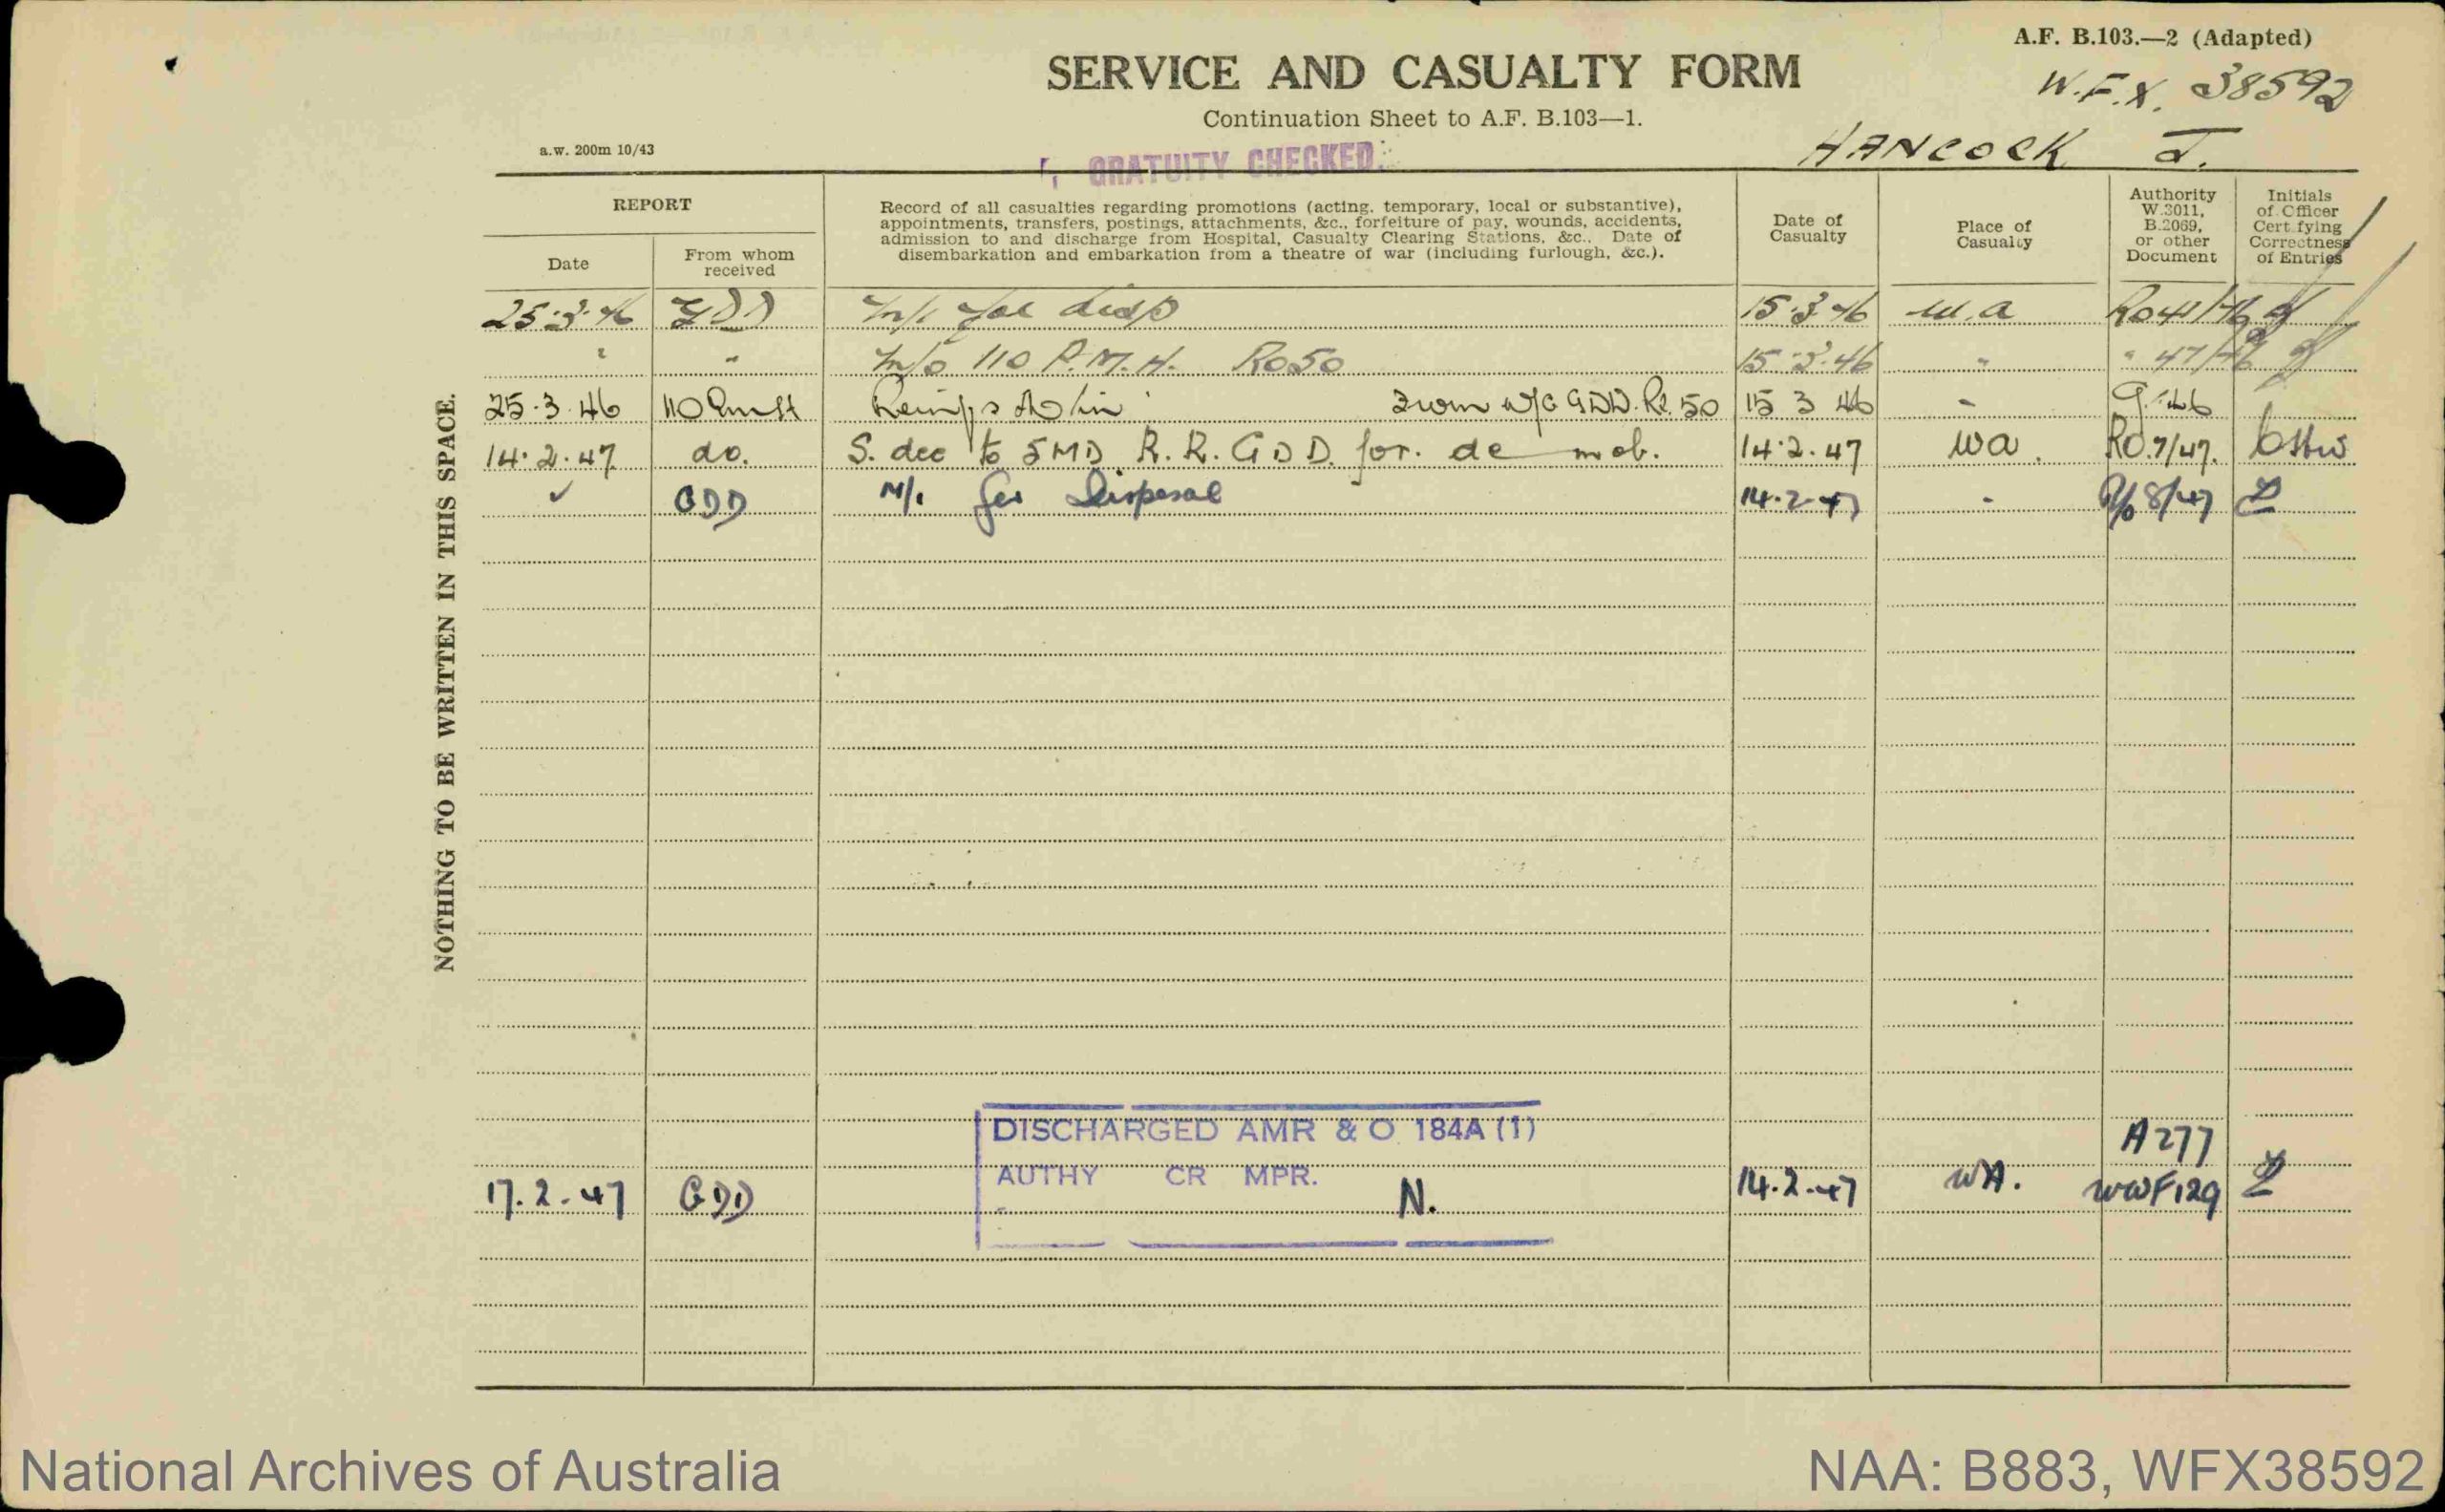 A.F. B.103.—2 (Adapted)
SERVICE AND CASUALTY FORM
W.F.X. 38592
Continuation Sheet to A.F. B.103—1.
HANCOCK J.
a.w. 200m 10/43
GRATUITY CHECKED.
REPORT
Date
From whom received
Record of all casualties regarding promotions (acting, temporary, local or substantive),
appointments, transfers, postings, attachments, &c., forfeiture of pay, wounds, accidents,
admission to and discharge from Hospital, Casualty Clearing Stations, &c.. Date of
disembarkation and embarkation from a theatre of war (including furlough, &c.).
Date of Casualty
Place of Casualty
Authority W.3011, B.2069, or other Document
Initials of Officer Certifying Correctness of Entries
25.3.46 GDD M/I for disp 15.3.46 W.A RO 41/46
" " M/O 110 P.M.H. RO50 15.3.46 " " 47/46
25.3.46 110 PMH from M/O GDD. RO. 50 15 3 46 " 9/46
14.2.47 do. S. dec to 5MD R.R. GDD. for. de mob. 14.2.47 WA. RO.7/47.
✓ GDD M/I for Disposal 14.2.47 " R/O 8/47
NOTHING TO BE WRITTEN IN THIS SPACE.
DISCHARGED AMR & O 184A (1)
A277
AUTHY CR MPR.
17.2.47 GDD N. 14.2.47 WA. WWF129
National Archives of Australia
NAA: B883, WFX38592